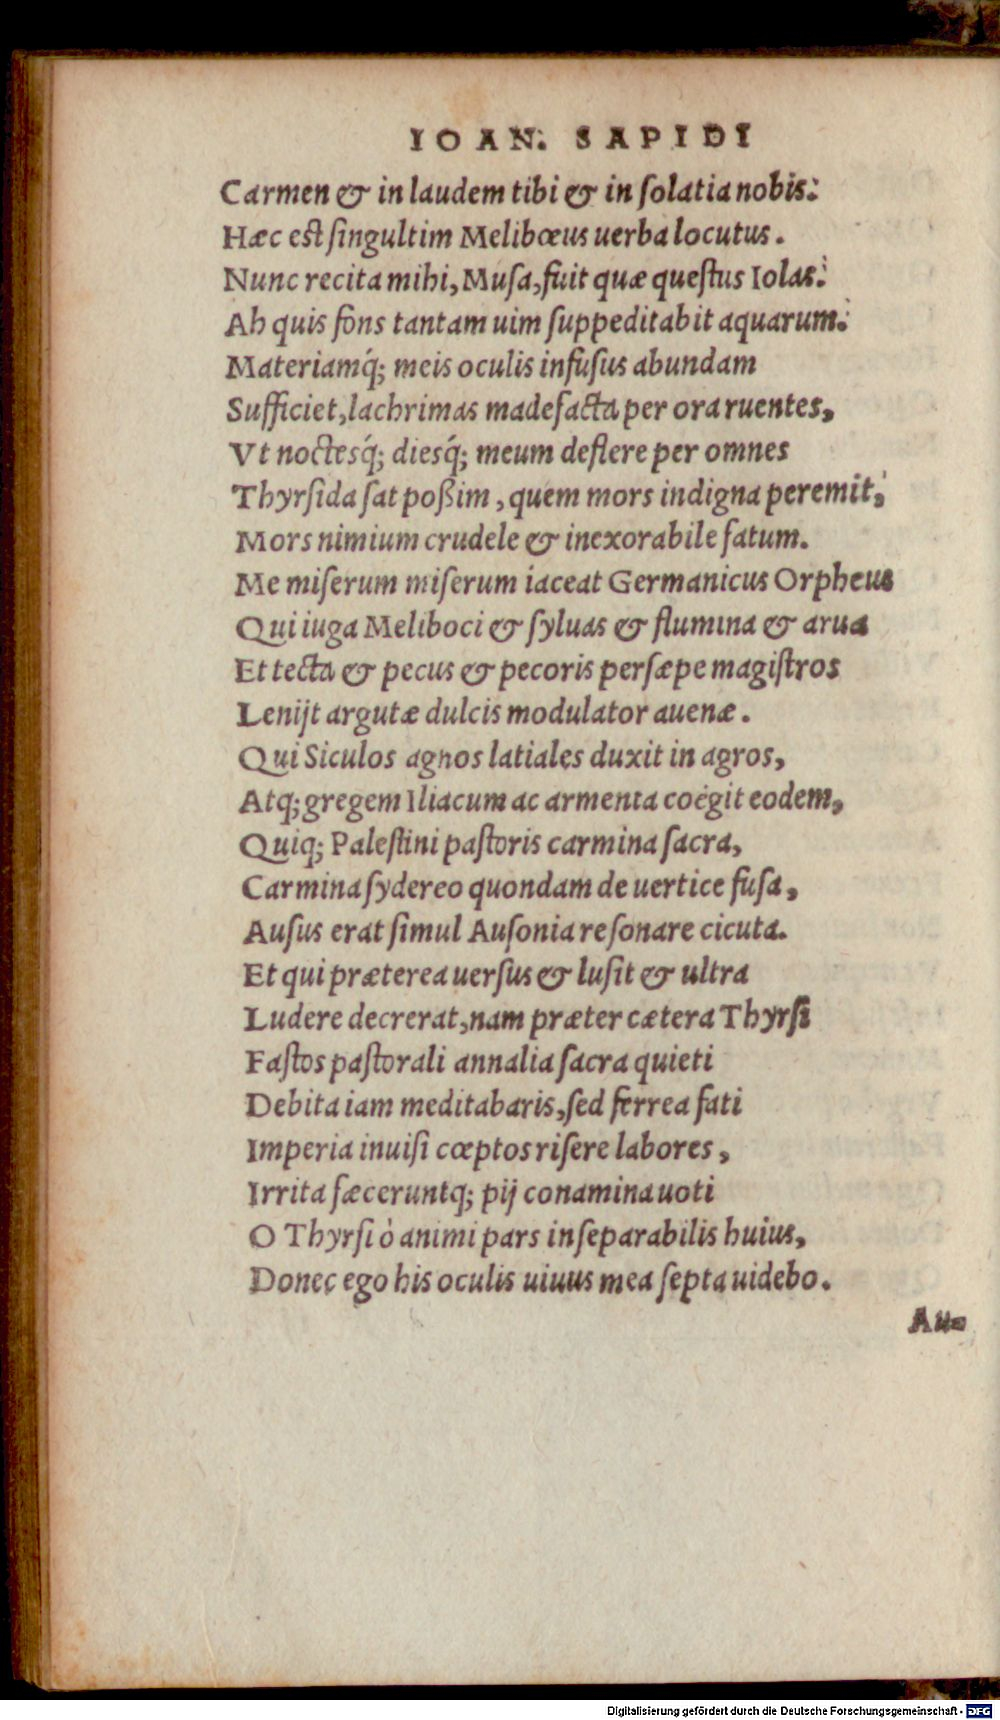 IOAN. SAPIDI
Carmen & in laudem tibi & in ſolatia nobis?
Hæc eſt ſingultim Melibœus uerba locutus.
Nunc recita mihi, Muſa, fuit quæ queſtus Iolas?
Ah quis fons tantam uim ſuppeditabit aquarum?
Materiamq́; meis oculis infuſus abundam
Sufficiet, lachrimas madefacta per ora ruentes,
Vt noctesq́; diesq́; meum deflere per omnes
Thyrſida ſat poßim, quem mors indigna peremit?
Mors nimium crudele & inexorabile fatum.
Me miſerum miſerum iaceat Germanicus Orpheus
Qui iuga Meliboci & ſyluas & flumina & arua
Et tecta & pecus & pecoris perſæpe magiſtros
Lenijt argutæ dulcis modulator auenæ.
Qui Siculos agnos latiales duxit in agros,
Atq; gregem Iliacum ac armenta coëgit eodem,
Quiq; Paleſtini paſtoris carmina ſacra,
Carmina ſydereo quondam de uertice fuſa,
Auſus erat ſimul Auſonia reſonare cicuta.
Et qui præterea uerſus & luſit & ultra
Ludere decrerat, nam præter cætera Thyrſi
Faſtos paſtorali annalia ſacra quieti
Debita iam meditabaris, ſed ferrea fati
Imperia inuiſi cœptos riſere labores,
Irrita fæceruntq; pij conamina uoti
O Thyrſi ò animi pars inſeparabilis huius,
Donec ego his oculis uiuus mea ſepta uidebo.
Au=
Digitalisierung gefördert durch die Deutsche Forschungsgemeinschaft - DFG